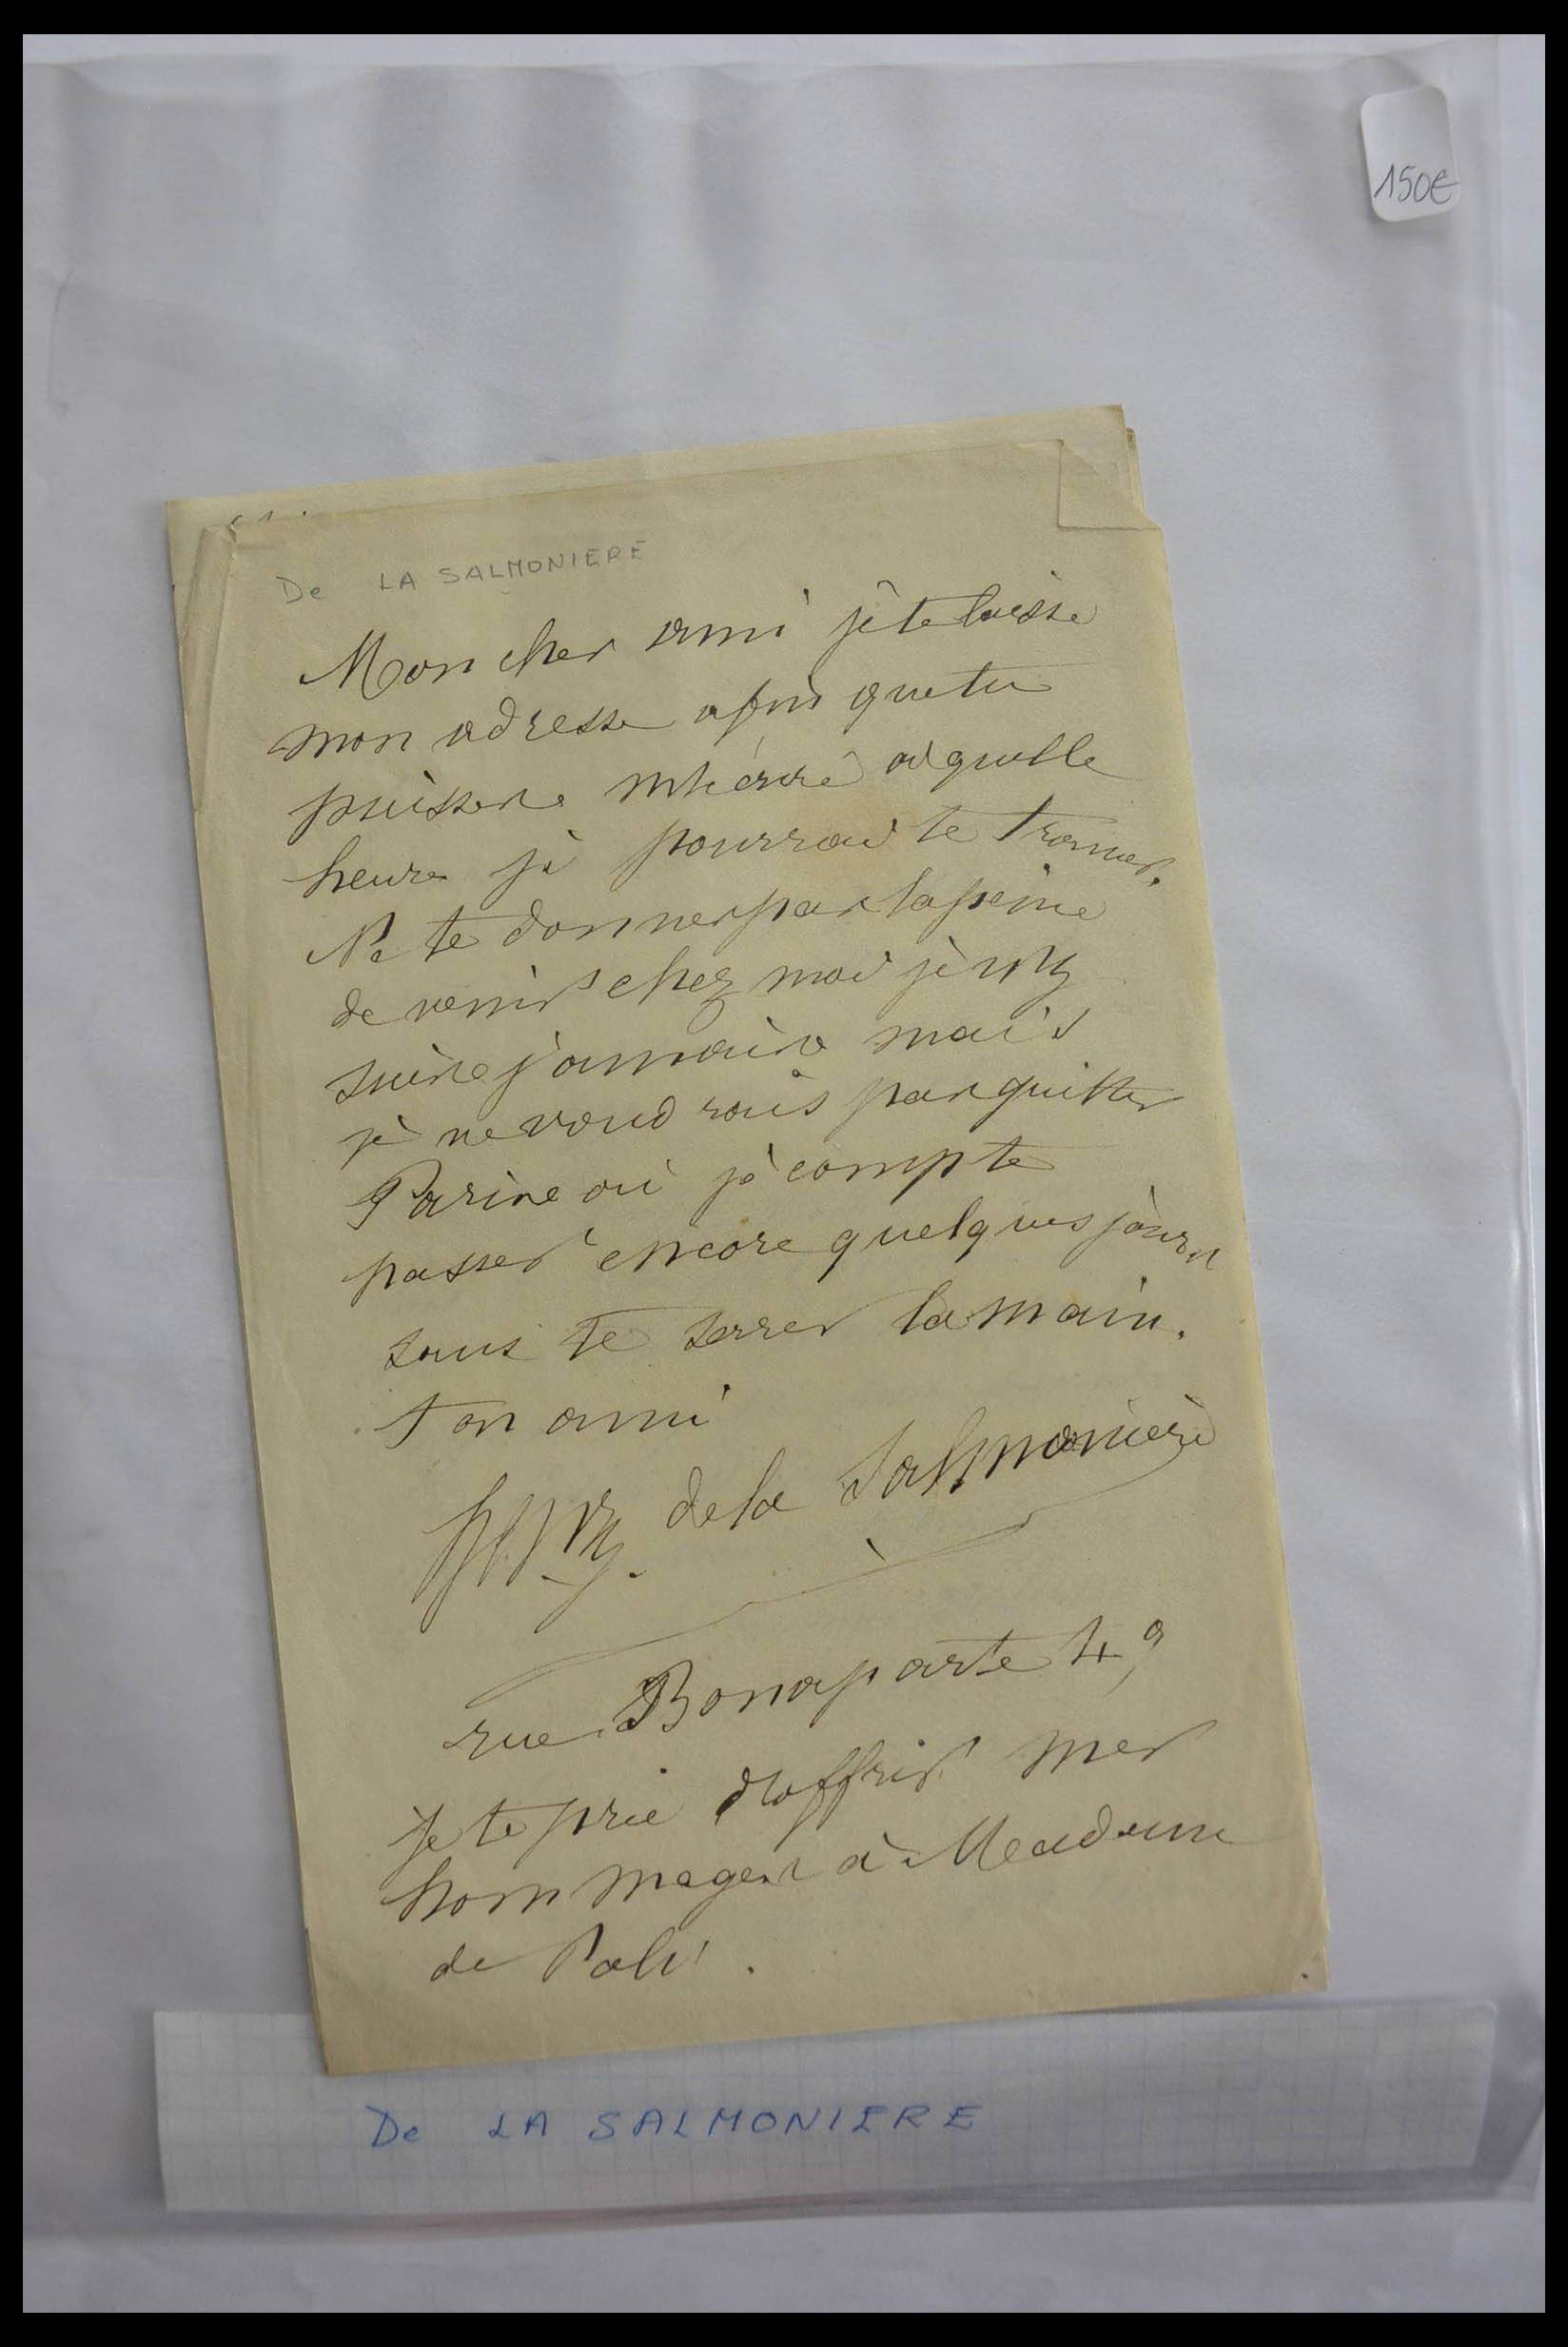 150€
De LA SALMONIERE
Mon cher ami je te laisse
mon adresse afin que tu
puisses m'écrire à quelle
heure je pourrai te trouver.
Ne te donnes pas la peine
de venir chez moi je n'y
suis jamais mais
je ne voudrais pas quitter
Paris où je compte
passer encore quelques jours
sans te serrer la main.
Ton ami
de la Salmonière
rue Bonaparte 49
Je te prie d'offrir mes
hommages à Madame
de Poli.
De LA SALMONIERE